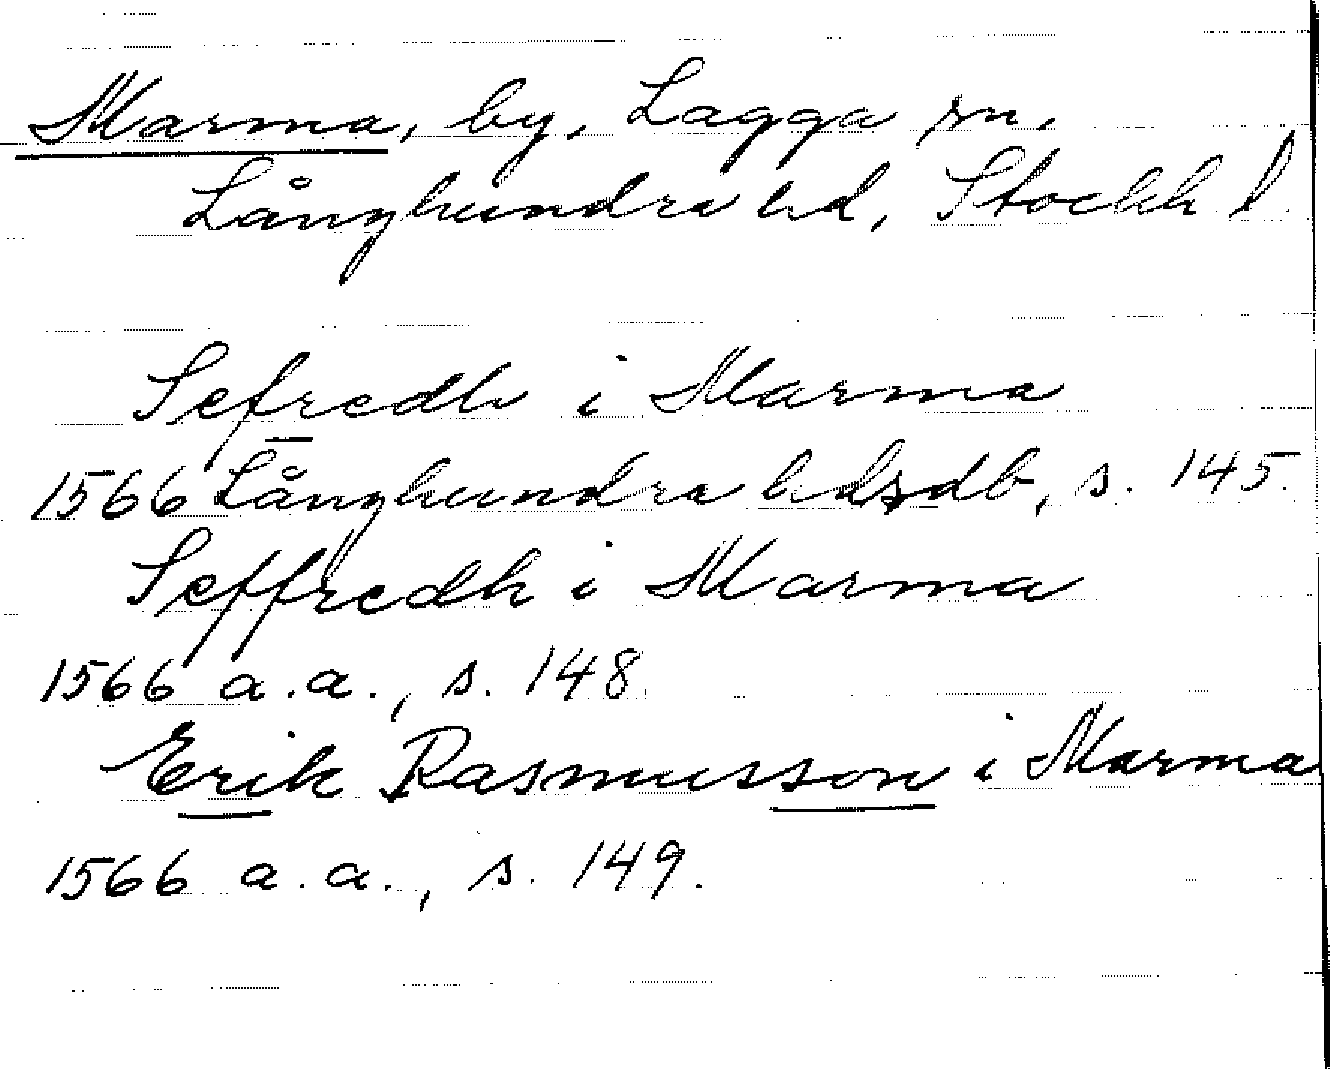 Marma, by, Lagga sn,
Långhundra hd, Stockh l
Sefredh i Marma
1566 Långhundra hdsdb, s. 145.
Seffredh i Marma
1566 a.a., s. 148
Erik Rasmusson i Marma
1566 a.a., s. 149.